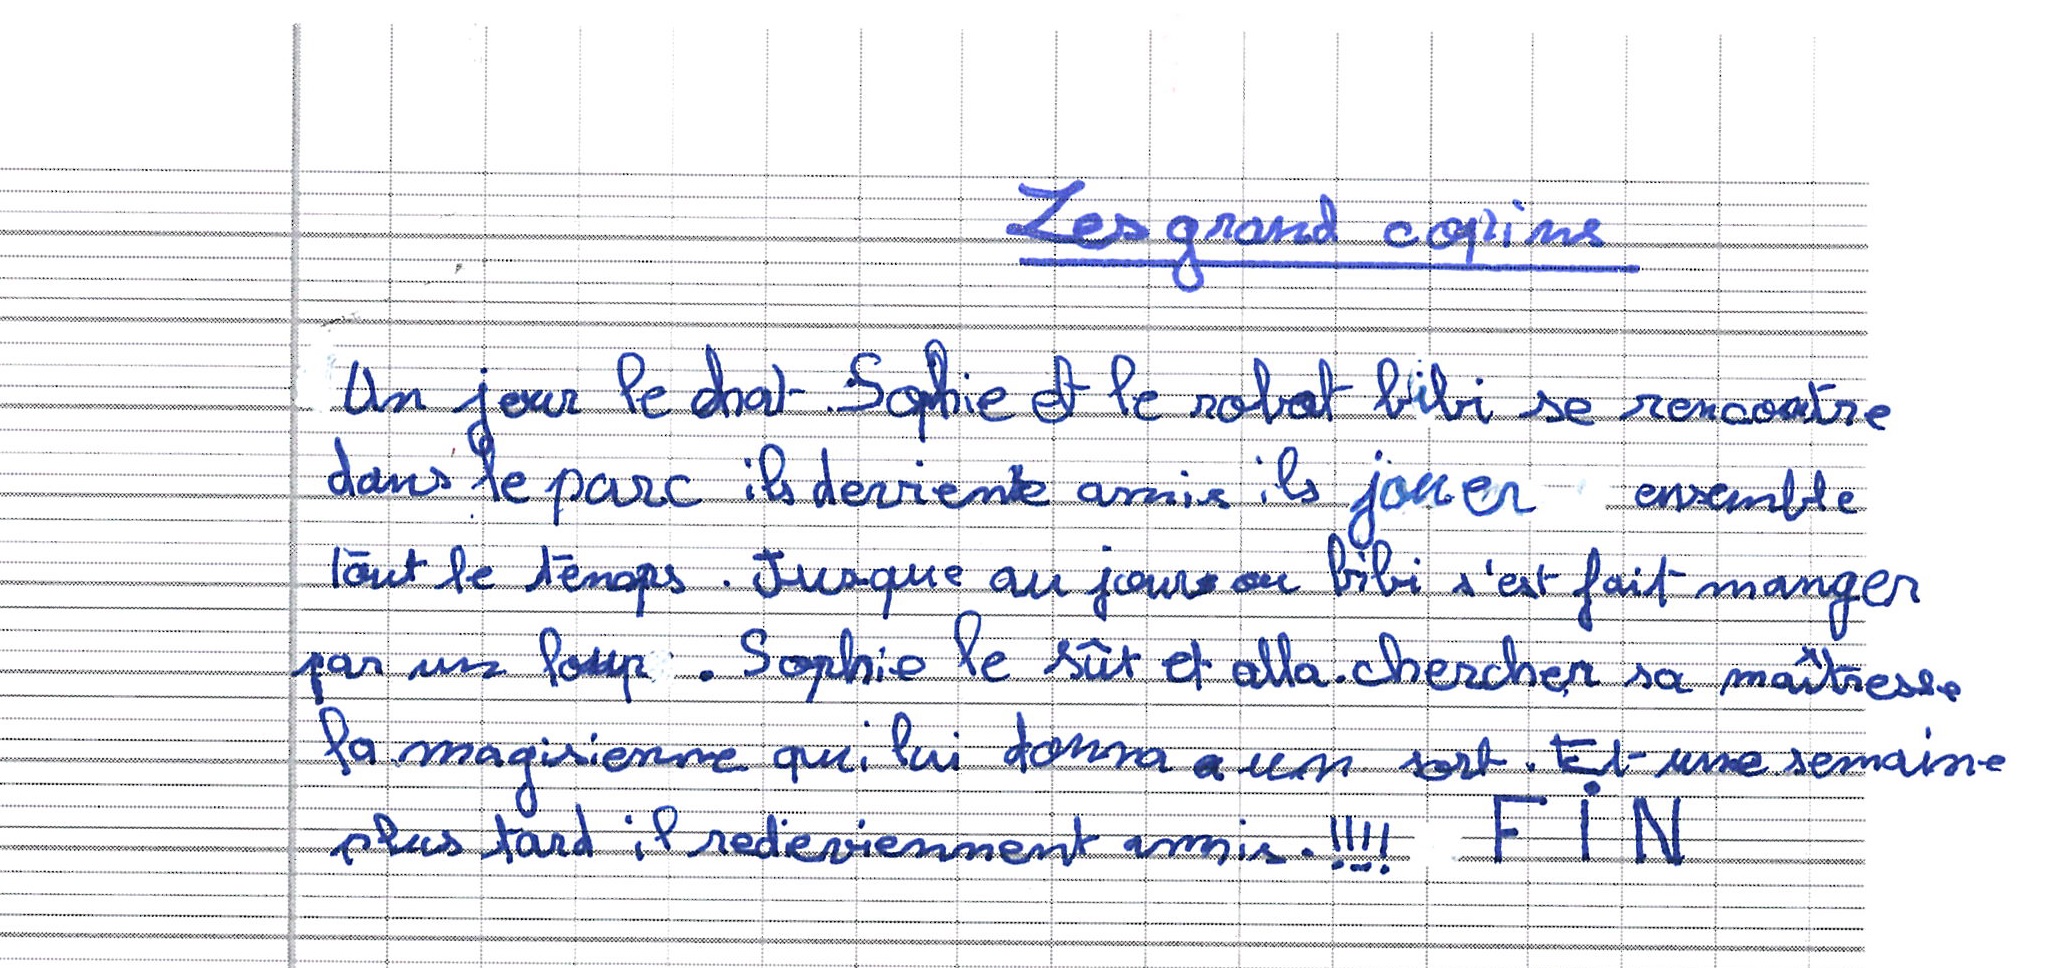 Les grand copins
Un jour le chat Sophie et le robot bibi se rencontre
dans le parc ils devient amis ils jouer ensemble
tout le temps. Jusque au jour ou bibi s'est fait manger
par un loup. Sophie le sût et alla chercher sa maîtresse
la magisienne qui lui donna un sort. Et une semaine
plus tard il redeviennent amis. !!!! FIN